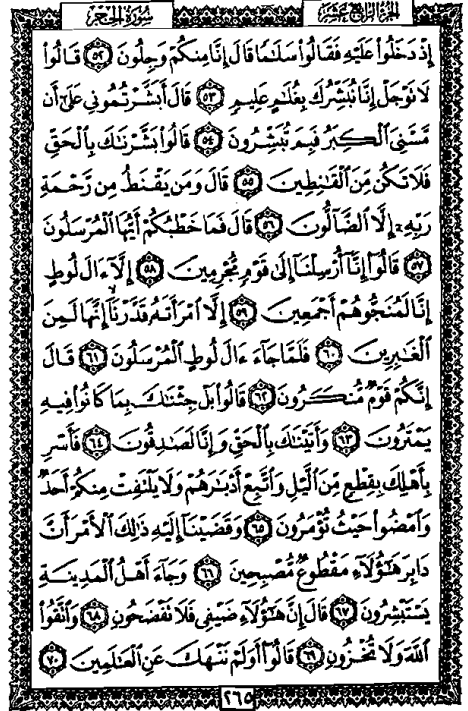 سُورَةُ الحِجْرِ
الجُزْءُ الرَّابِعُ عَشَرَ
إِذْ دَخَلُوا۟ عَلَيْهِ فَقَالُوا۟ سَلَٰمًا قَالَ إِنَّا مِنكُمْ وَجِلُونَ ۝٥٢ قَالُوا۟
لَا تَوْجَلْ إِنَّا نُبَشِّرُكَ بِغُلَٰمٍ عَلِيمٍ ۝٥٣ قَالَ أَبَشَّرْتُمُونِى عَلَىٰٓ أَن
مَّسَّنِىَ ٱلْكِبَرُ فَبِمَ تُبَشِّرُونَ ۝٥٤ قَالُوا۟ بَشَّرْنَٰكَ بِٱلْحَقِّ
فَلَا تَكُن مِّنَ ٱلْقَٰنِطِينَ ۝٥٥ قَالَ وَمَن يَقْنَطُ مِن رَّحْمَةِ
رَبِّهِۦٓ إِلَّا ٱلضَّآلُّونَ ۝٥٦ قَالَ فَمَا خَطْبُكُمْ أَيُّهَا ٱلْمُرْسَلُونَ
۝٥٧ قَالُوٓا۟ إِنَّآ أُرْسِلْنَآ إِلَىٰ قَوْمٍ مُّجْرِمِينَ ۝٥٨ إِلَّآ ءَالَ لُوطٍ
إِنَّا لَمُنَجُّوهُمْ أَجْمَعِينَ ۝٥٩ إِلَّا ٱمْرَأَتَهُۥ قَدَّرْنَآ إِنَّهَا لَمِنَ
ٱلْغَٰبِرِينَ ۝٦٠ فَلَمَّا جَآءَ ءَالَ لُوطٍ ٱلْمُرْسَلُونَ ۝٦١ قَالَ
إِنَّكُمْ قَوْمٌ مُّنكَرُونَ ۝٦٢ قَالُوا۟ بَلْ جِئْنَٰكَ بِمَا كَانُوا۟ فِيهِ
يَمْتَرُونَ ۝٦٣ وَأَتَيْنَٰكَ بِٱلْحَقِّ وَإِنَّا لَصَٰدِقُونَ ۝٦٤ فَأَسْرِ
بِأَهْلِكَ بِقِطْعٍ مِّنَ ٱلَّيْلِ وَٱتَّبِعْ أَدْبَٰرَهُمْ وَلَا يَلْتَفِتْ مِنكُمْ أَحَدٌ
وَٱمْضُوا۟ حَيْثُ تُؤْمَرُونَ ۝٦٥ وَقَضَيْنَآ إِلَيْهِ ذَٰلِكَ ٱلْأَمْرَ أَنَّ
دَابِرَ هَٰٓؤُلَآءِ مَقْطُوعٌ مُّصْبِحِينَ ۝٦٦ وَجَآءَ أَهْلُ ٱلْمَدِينَةِ
يَسْتَبْشِرُونَ ۝٦٧ قَالَ إِنَّ هَٰٓؤُلَآءِ ضَيْفِى فَلَا تَفْضَحُونِ ۝٦٨ وَٱتَّقُوا۟
ٱللَّهَ وَلَا تُخْزُونِ ۝٦٩ قَالُوٓا۟ أَوَلَمْ نَنْهَكَ عَنِ ٱلْعَٰلَمِينَ ۝٧٠
٢٦٥